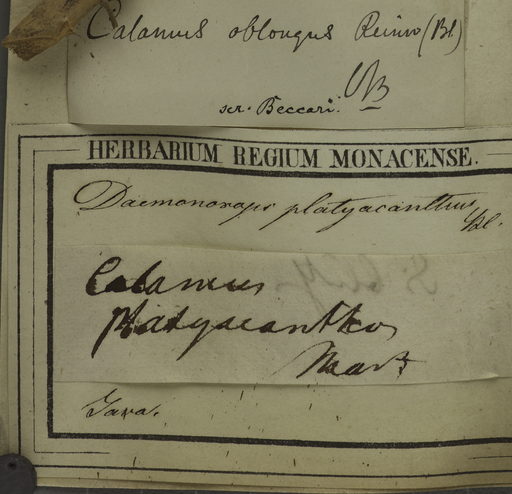 Calamus oblongus Reinw (Bl)
scr. Beccari.
HERBARIUM REGIUM MONACENSE.
Daemonorops platyacanthus
Bl.
Calamus
platyacanthos
Mart
Java.